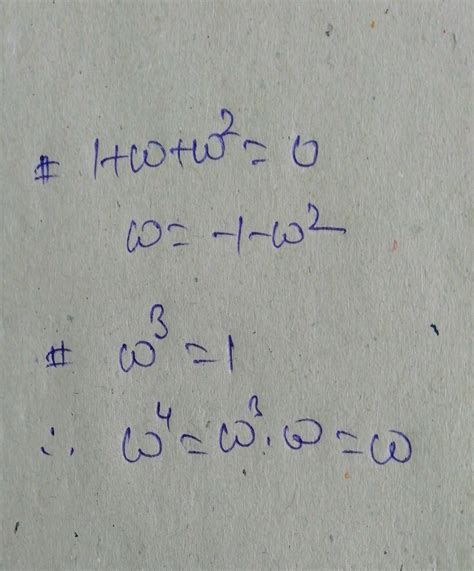 # 1+ω+ω²=0
ω=-1-ω²
# ω³=1
∴ ω⁴=ω³.ω=ω